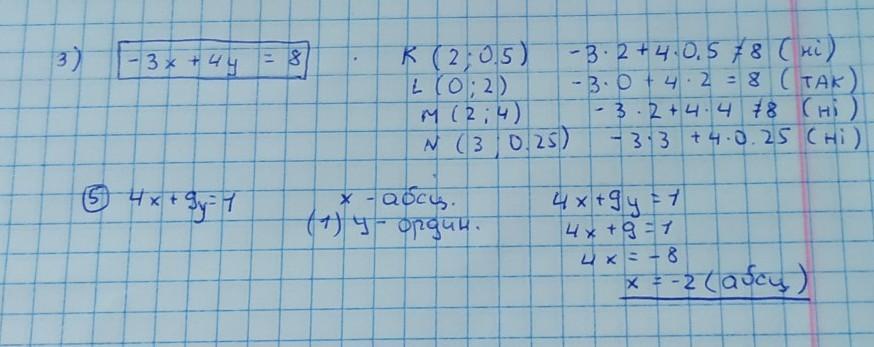 3) -3x + 4y = 8 . K (2 ; 0.5) -3·2+4·0.5 ≠8 (ні)
L (0 ; 2) -3·0 + 4·2 = 8 (ТАК)
M (2 ; 4) -3·2+4·4 ≠8 (ні)
N (3 ; 0.25) -3·3 +4·0.25 (ні)
⑤ 4x+9y=1 x - абсц. 4x+9y=1
(1) y - ордин. 4x+9=1
4x = -8
x = -2 (абсц)